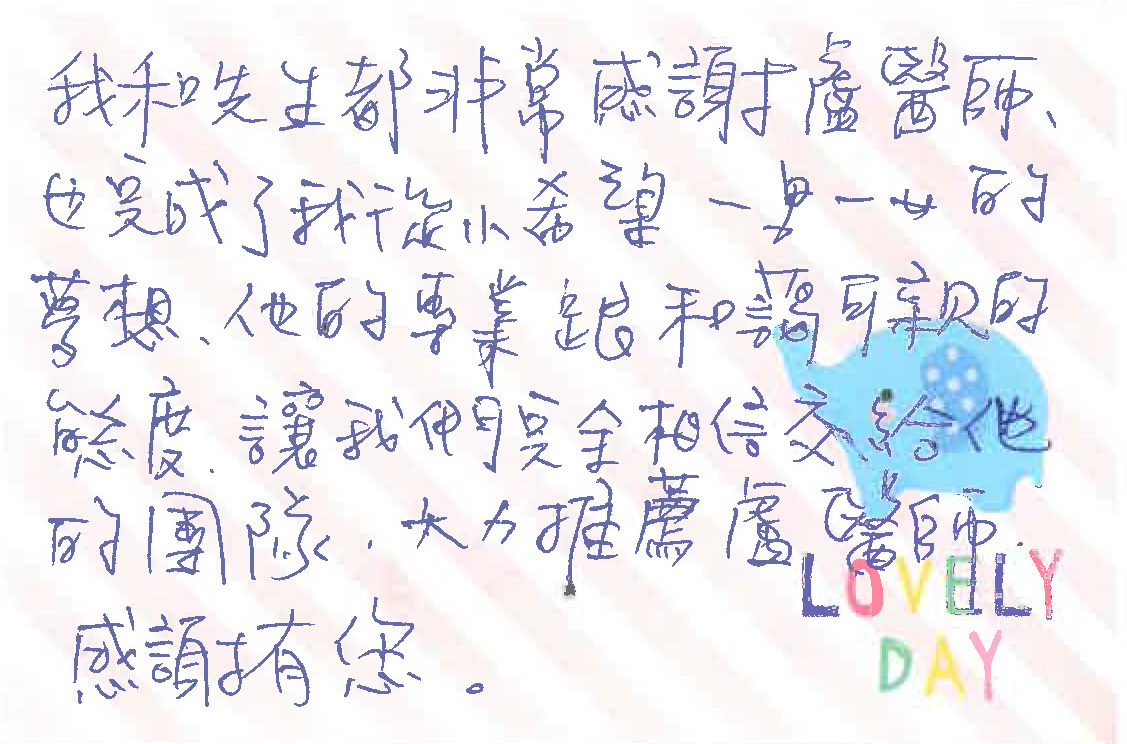 我和先生都非常感謝盧醫師、
也完成了我從小希望一男一女的
夢想、他的專業跟和藹可親的
態度.讓我們完全相信交給他
的團隊.大力推薦盧醫師.
感謝有您。
LOVELY
DAY